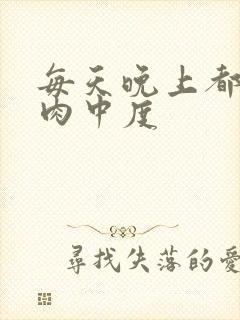 每天晚上都
肉中度
尋找失落的愛